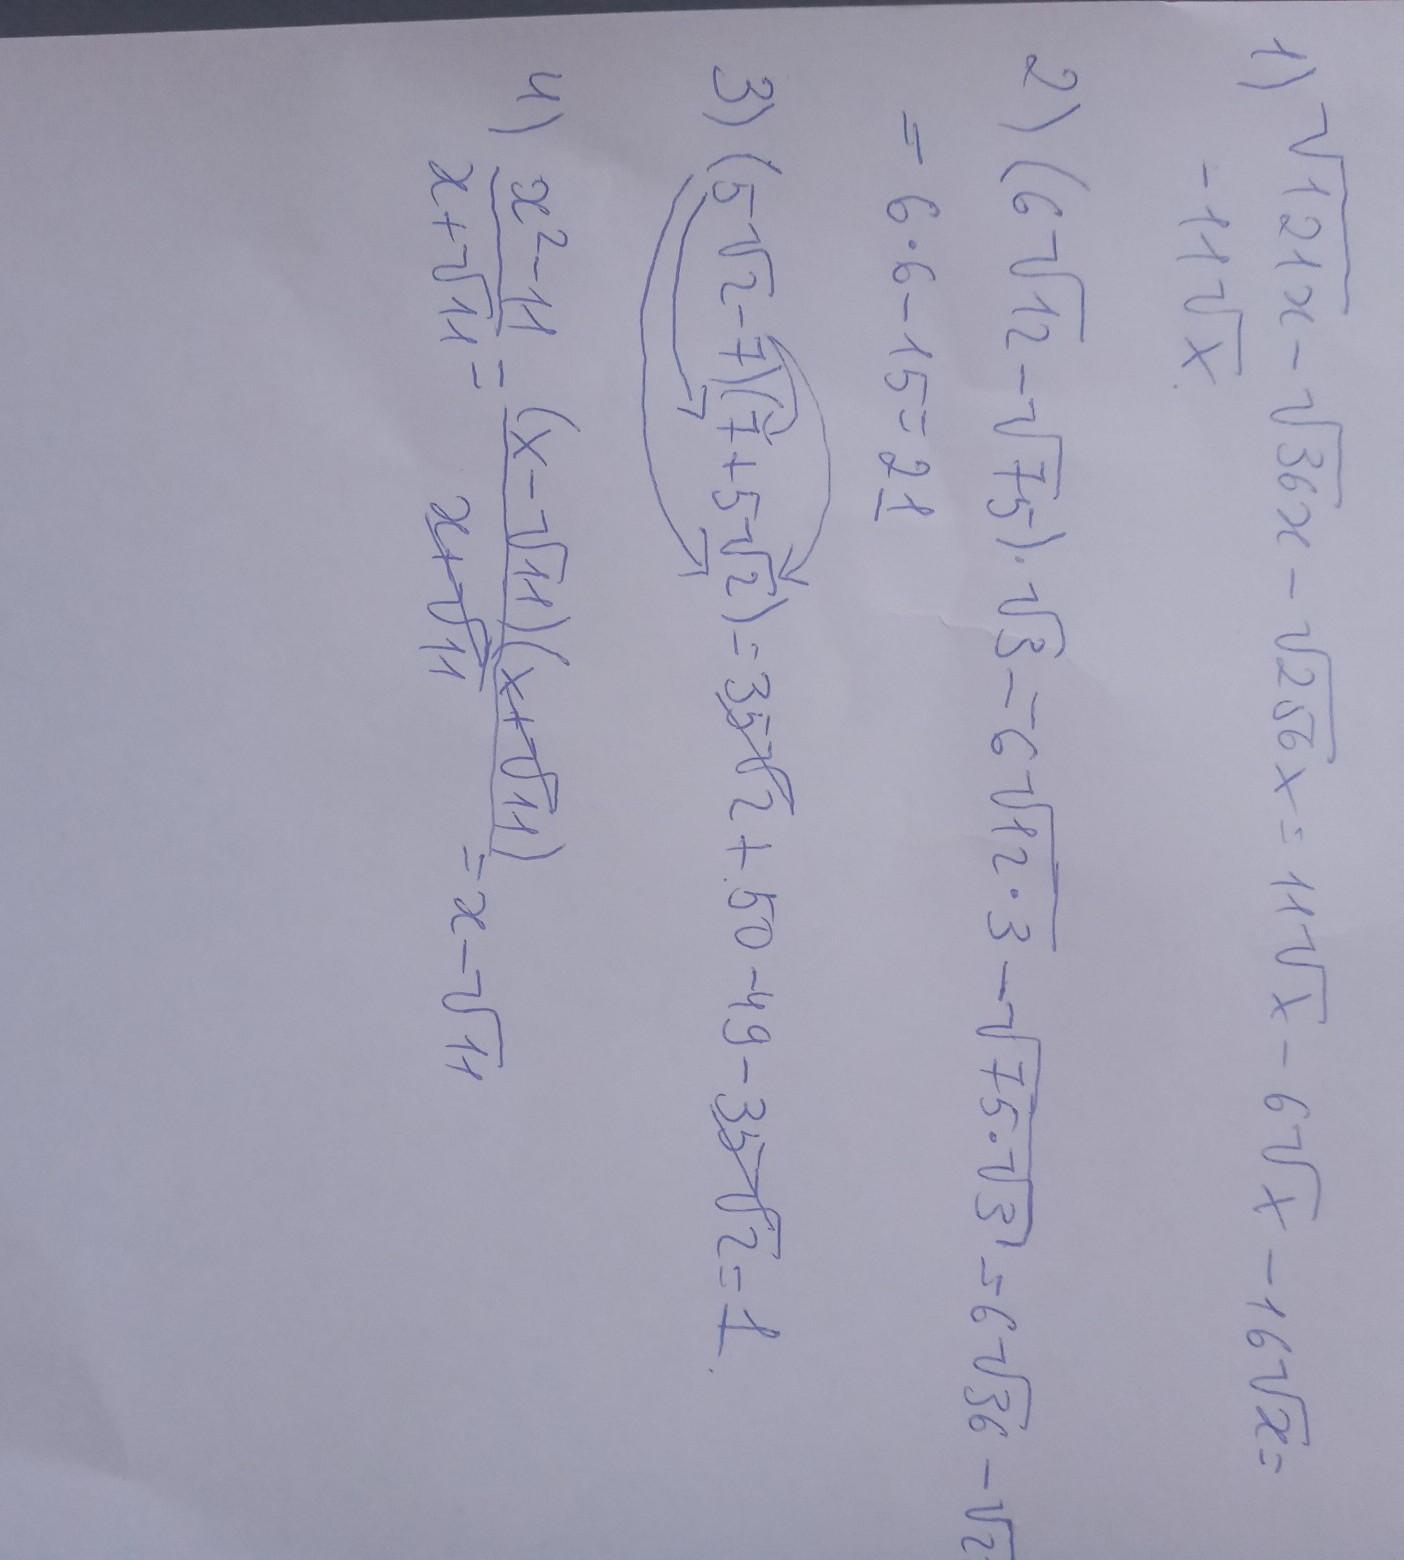 1) √121x - √36x - √256x = 11√x - 6√x - 16√x =
- 11√x.
2) (6√12 - √75) · √3 = 6√12·3 - √75·√3 = 6√36 - √2
= 6·6 - 15 = 21
3) (5√2 - 7)(7 + 5√2) = 35√2 + 50 - 49 - 35√2 = 1.
4) x² - 11 / x + √11 = (x - √11)(x + √11) / x + √11 = x - √11